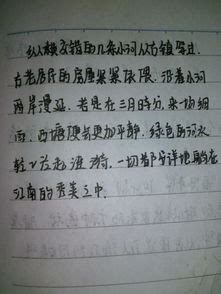 纵横交错的几条小河从古镇穿过
古老居民的房屋紧紧依偎，沿着小河
两岸漫延，若是在三月时分，来一场细
雨，西塘便更加平静，绿色的河水
轻轻发起涟漪，一切都安详地融在
江南的秀美之中.